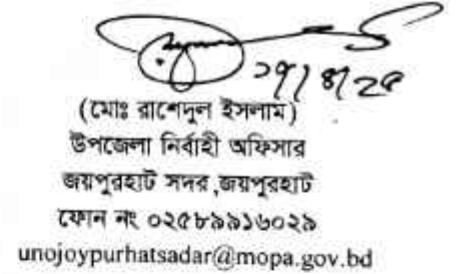 ২৭/৪/২৫
(মোঃ রাশেদুল ইসলাম)
উপজেলা নির্বাহী অফিসার
জয়পুরহাট সদর ,জয়পুরহাট
ফোন নং ০২৫৮৯৯১৬০২৯
unojoypurhatsadar@mopa.gov.bd